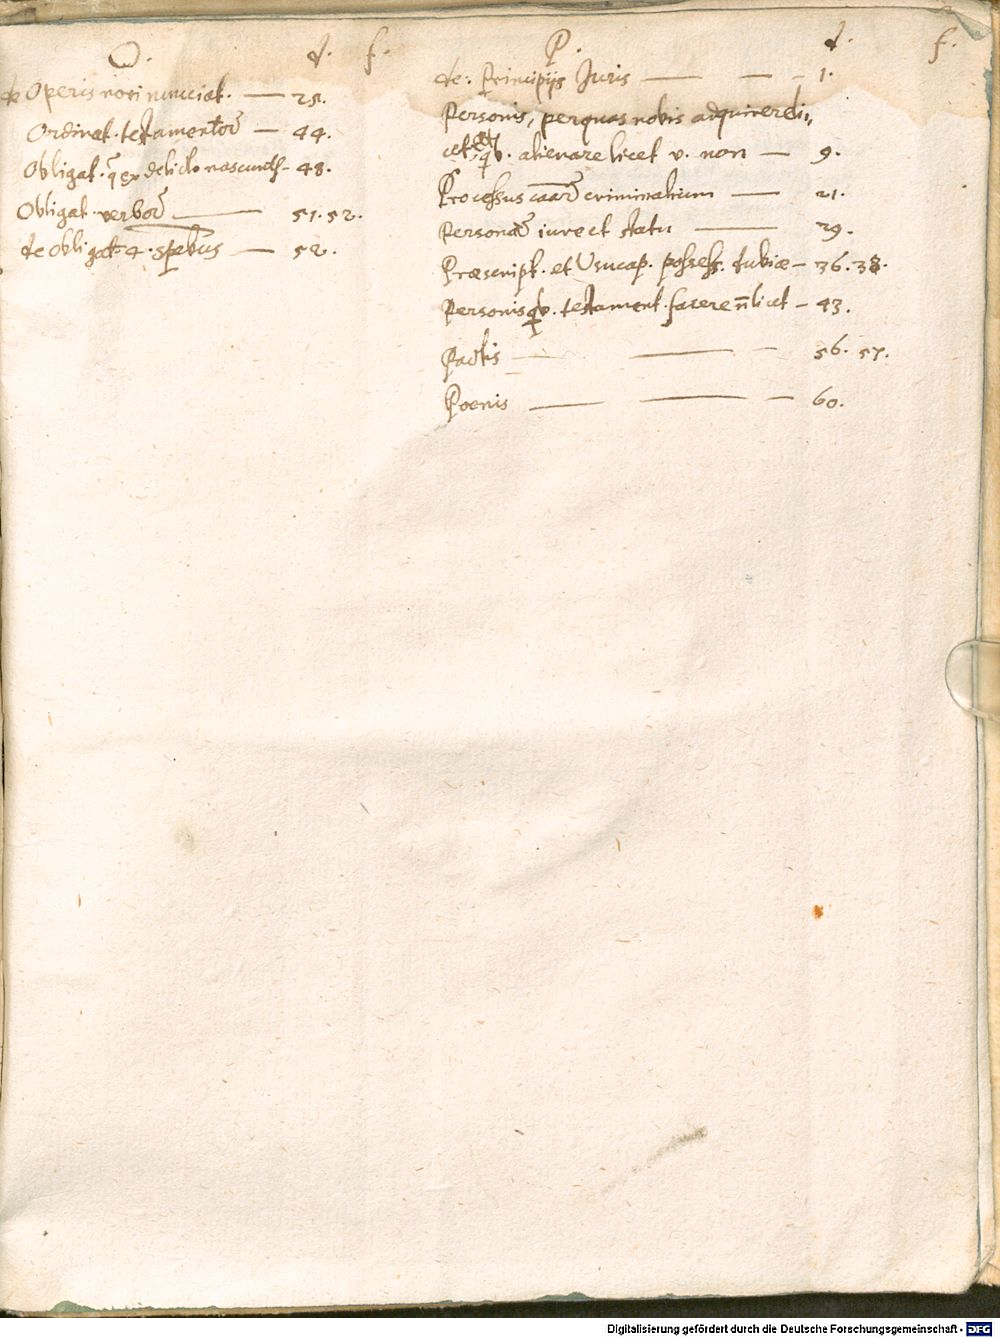 O. d. f.
de Operis novi nunciat. — 25.
Ordinat. testamentor̃ — 44.
Obligat. q̃ ex delicto nascunt̃ - 48.
Obligat. verbor̃ — 51. 52.
de obligat. 4. spẽbus — 52.
P. d. f.
de: Principijs Juris — — - 1.
Personis, per quas nobis adquirere di,,
cet et qb. alienare licet v. non — 9.
Processus caar̃ criminalium — 21.
Personar̃ iure et statu — 29.
Præscript. et Usucap. possess. dubiæ - 36. 38.
Personis qb. testament. facere ñ licet - 43.
Pactis — — - 56. 57.
Poenis — — — 60.
Digitalisierung gefördert durch die Deutsche Forschungsgemeinschaft - DFG